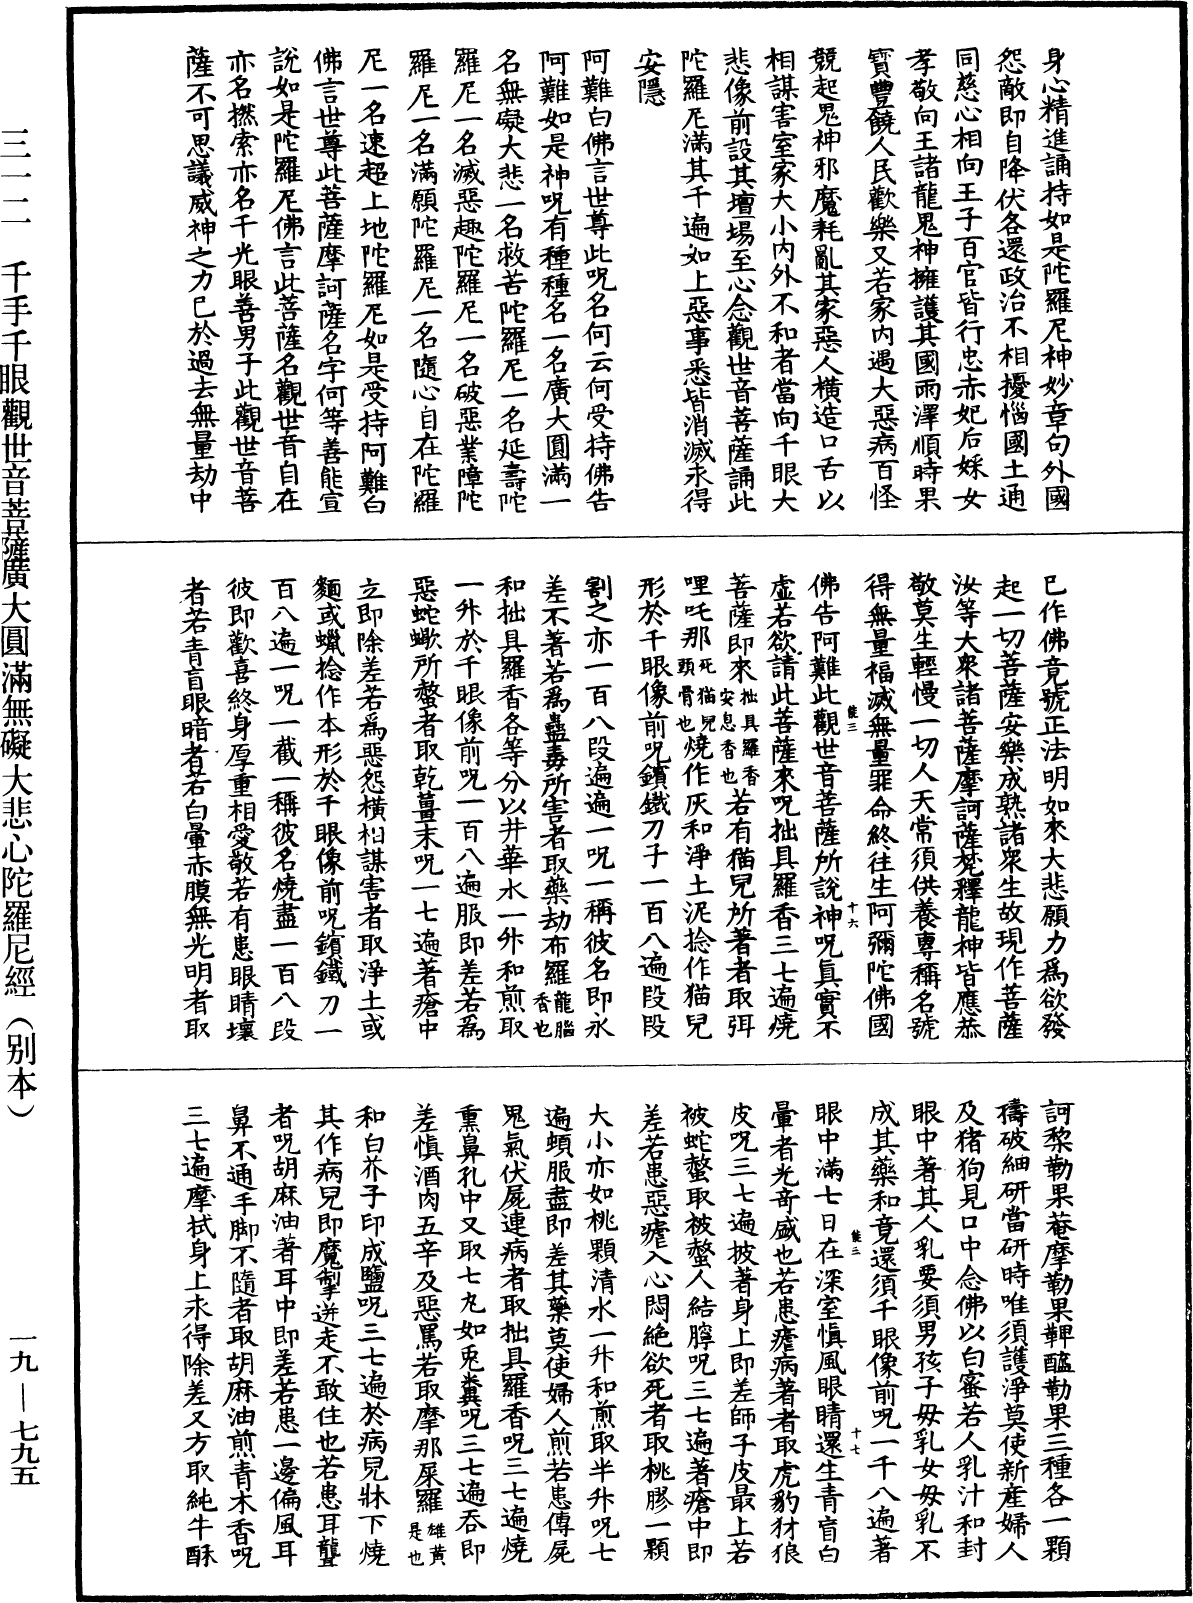 身心精進誦持如是陀羅尼神妙章句外國
怨敵即自降伏各還政治不相擾惱國土通
同慈心相向王子百官皆行忠赤妃后婇女
孝敬向王諸龍鬼神擁護其國雨澤順時果
實豐饒人民歡樂又若家內遇大惡病百怪
競起鬼神邪魔耗亂其家惡人橫造口舌以
相謀害室家大小內外不和者當向千眼大
悲像前設其壇場至心念觀世音菩薩誦此
陀羅尼滿其千遍如上惡事悉皆消滅永得
安隱
阿難白佛言世尊此呪名何云何受持佛告
阿難如是神呪有種種名一名廣大圓滿一
名無礙大悲一名救苦陀羅尼一名延壽陀
羅尼一名滅惡趣陀羅尼一名破惡業障陀
羅尼一名滿願陀羅尼一名隨心自在陀羅
尼一名速超上地陀羅尼如是受持阿難白
佛言世尊此菩薩摩訶薩名字何等善能宣
說如是陀羅尼佛言此菩薩名觀世音自在
亦名撚索亦名千光眼善男子此觀世音菩
薩不可思議威神之力已於過去無量劫中
已作佛竟號正法明如來大悲願力爲欲發
起一切菩薩安樂成熟諸眾生故現作菩薩
汝等大眾諸菩薩摩訶薩梵釋龍神皆應恭
敬莫生輕慢一切人天常須供養專稱名號
得無量福滅無量罪命終往生阿彌陀佛國
佛告阿難此觀世音菩薩所說神呪真實不
虛若欲請此菩薩來呪拙具羅香三七遍燒
菩薩即來拙具羅香安息香也若有猫兒所著者取弭
哩吒那死猫兒頭骨也燒作灰和淨土泥捻作猫兒
形於千眼像前呪鑌鐵刀子一百八遍段段
割之亦一百八段遍遍一呪一稱彼名即永
差不著若爲蠱毒所害者取藥劫布羅龍腦香也
和拙具羅香各等分以井華水一升和煎取
一升於千眼像前呪一百八遍服即差若爲
惡蛇蠍所螫者取乾薑末呪一七遍著瘡中
立即除差若爲惡怨橫相謀害者取淨土或
麵或蠟捻作本形於千眼像前呪鑌鐵刀一
百八遍一呪一截一稱彼名燒盡一百八段
彼即歡喜終身厚重相愛敬若有患眼睛壞
者若青盲眼暗者若白暈赤膜無光明者取
訶黎勒果菴摩勒果鞞醯勒果三種各一顆
擣破細研當研時唯須護淨莫使新產婦人
及猪狗見口中念佛以白蜜若人乳汁和封
眼中著其人乳要須男孩子母乳女母乳不
成其藥和竟還須千眼像前呪一千八遍著
眼中滿七日在深室慎風眼睛還生青盲白
暈者光奇盛也若患瘧病著者取虎豹犲狼
皮呪三七遍披著身上即差師子皮最上若
被蛇螫取被螫人結膟呪三七遍著瘡中即
差若患惡瘧入心悶絕欲死者取桃膠一顆
大小亦如桃顆清水一升和煎取半升呪七
遍頓服盡即差其藥莫使婦人煎若患傳屍
鬼氣伏屍連病者取拙具羅香呪三七遍燒
熏鼻孔中又取七丸如兎糞呪三七遍吞即
差慎酒肉五辛及惡罵若取摩那屎羅雄黃是也
和白芥子印成鹽呪三七遍於病兒牀下燒
其作病兒即魔掣迸走不敢住也若患耳聾
者呪胡麻油著耳中即差若患一邊偏風耳
鼻不通手脚不隨者取胡麻油煎青木香呪
三七遍摩拭身上永得除差又方取純牛酥
能三
十六
能三
十七
三一二 千手千眼觀世音菩薩廣大圓滿無礙大悲心陀羅尼經（別本） 一九—七九五